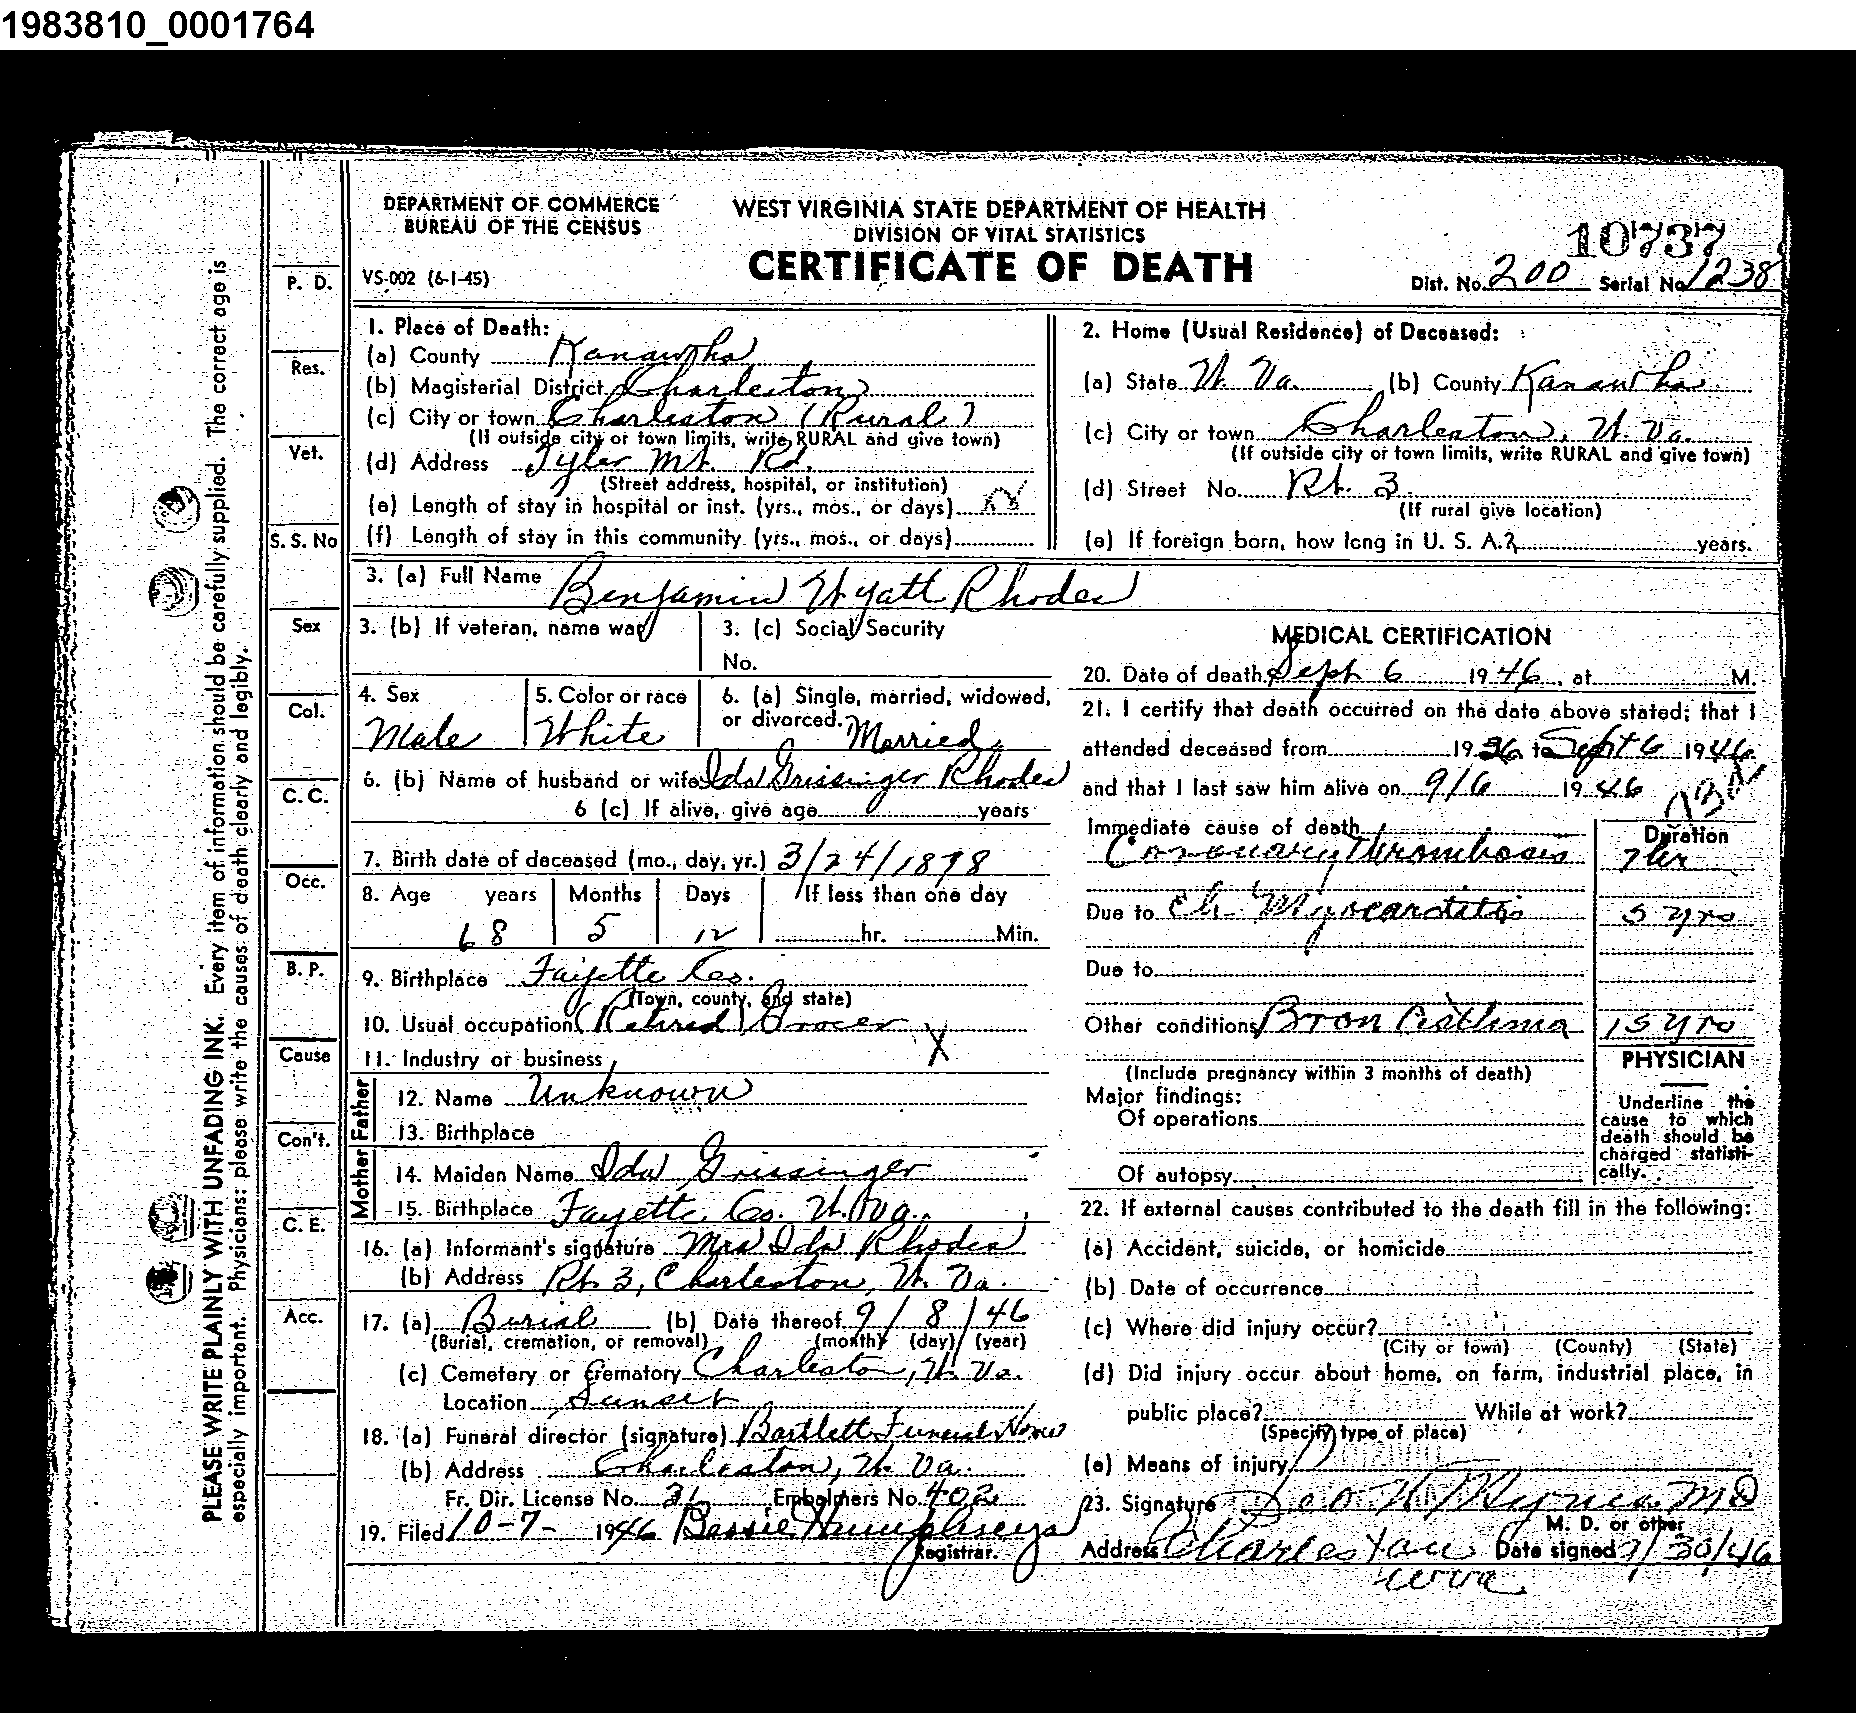 1983810_0001764
DEPARTMENT OF COMMERCE
BUREAU OF THE CENSUS
VS-002 (6-1-45)
WEST VIRGINIA STATE DEPARTMENT OF HEALTH
DIVISION OF VITAL STATISTICS
CERTIFICATE OF DEATH
10737
Dist. No. 200 Serial No. 1238
PLEASE WRITE PLAINLY WITH UNFADING INK. Every item of information should be carefully supplied. The correct age is
especially important. Physicians: please write the causes of death clearly and legibly.
P. D.
Res.
Vet.
S. S. No
Sex
Col.
C. C.
Occ.
B. P.
Cause
Con't.
C. E.
Acc.
1. Place of Death:
(a) County Kanawha
(b) Magisterial District Charleston
(c) City or town Charleston (Rural)
(If outside city or town limits, write RURAL and give town)
(d) Address Tyler Mt. Rd.
(Street address, hospital, or institution)
(e) Length of stay in hospital or inst. (yrs., mos., or days)
(f) Length of stay in this community (yrs., mos., or days)
2. Home (Usual Residence) of Deceased:
(a) State W. Va. (b) County Kanawha
(c) City or town Charleston, W. Va.
(If outside city or town limits, write RURAL and give town)
(d) Street No. Rt. 3
(If rural give location)
(e) If foreign born, how long in U. S. A.? years.
3. (a) Full Name Benjamin Wyatt Rhodes
3. (b) If veteran, name war
3. (c) Social Security
No.
4. Sex
Male
5. Color or race
White
6. (a) Single, married, widowed,
or divorced. Married
6. (b) Name of husband or wife Ida Grissinger Rhodes
6 (c) If alive, give age years
7. Birth date of deceased (mo., day, yr.) 3/24/1878
8. Age years Months Days If less than one day
68 5 12 hr. Min.
9. Birthplace Fayette Co.
(Town, county, and state)
10. Usual occupation (Retired) Grocer
X
11. Industry or business
Father
12. Name Unknown
13. Birthplace
Mother
14. Maiden Name Ida Grissinger
15. Birthplace Fayette Co. W. Va.
16. (a) Informant's signature Mrs Ida Rhodes
(b) Address Rt. 3, Charleston, W. Va.
17. (a) Burial (b) Date thereof 9/8/46
(Burial, cremation, or removal) (month) (day) (year)
(c) Cemetery or Crematory Charleston, W. Va.
Location Sunset
18. (a) Funeral director (signature) Bartlett Funeral Home
(b) Address Charleston, W. Va.
Fr. Dir. License No. 31 Embalmers No. 402
19. Filed 10-7- 1946 Bessie Humphreys
Registrar.
MEDICAL CERTIFICATION
20. Date of death Sept 6 1946, at M.
21. I certify that death occurred on the date above stated; that I
attended deceased from 1936 to Sept 6 1946
and that I last saw him alive on 9/6 1946
Immediate cause of death
Coronary Thrombosis
Duration
7 hr
Due to Ch. Myocarditis 5 yrs
Due to
Other conditions Bron Asthma 15 yrs
(Include pregnancy within 3 months of death)
Major findings:
Of operations
Of autopsy
PHYSICIAN
Underline the
cause to which
death should be
charged statisti-
cally.
22. If external causes contributed to the death fill in the following:
(a) Accident, suicide, or homicide
(b) Date of occurrence
(c) Where did injury occur?
(City or town) (County) (State)
(d) Did injury occur about home, on farm, industrial place, in
public place? While at work?
(Specify type of place)
(e) Means of injury
23. Signature Geo W MD
M. D. or other
Address Charleston Date signed 9/30/46
W Va